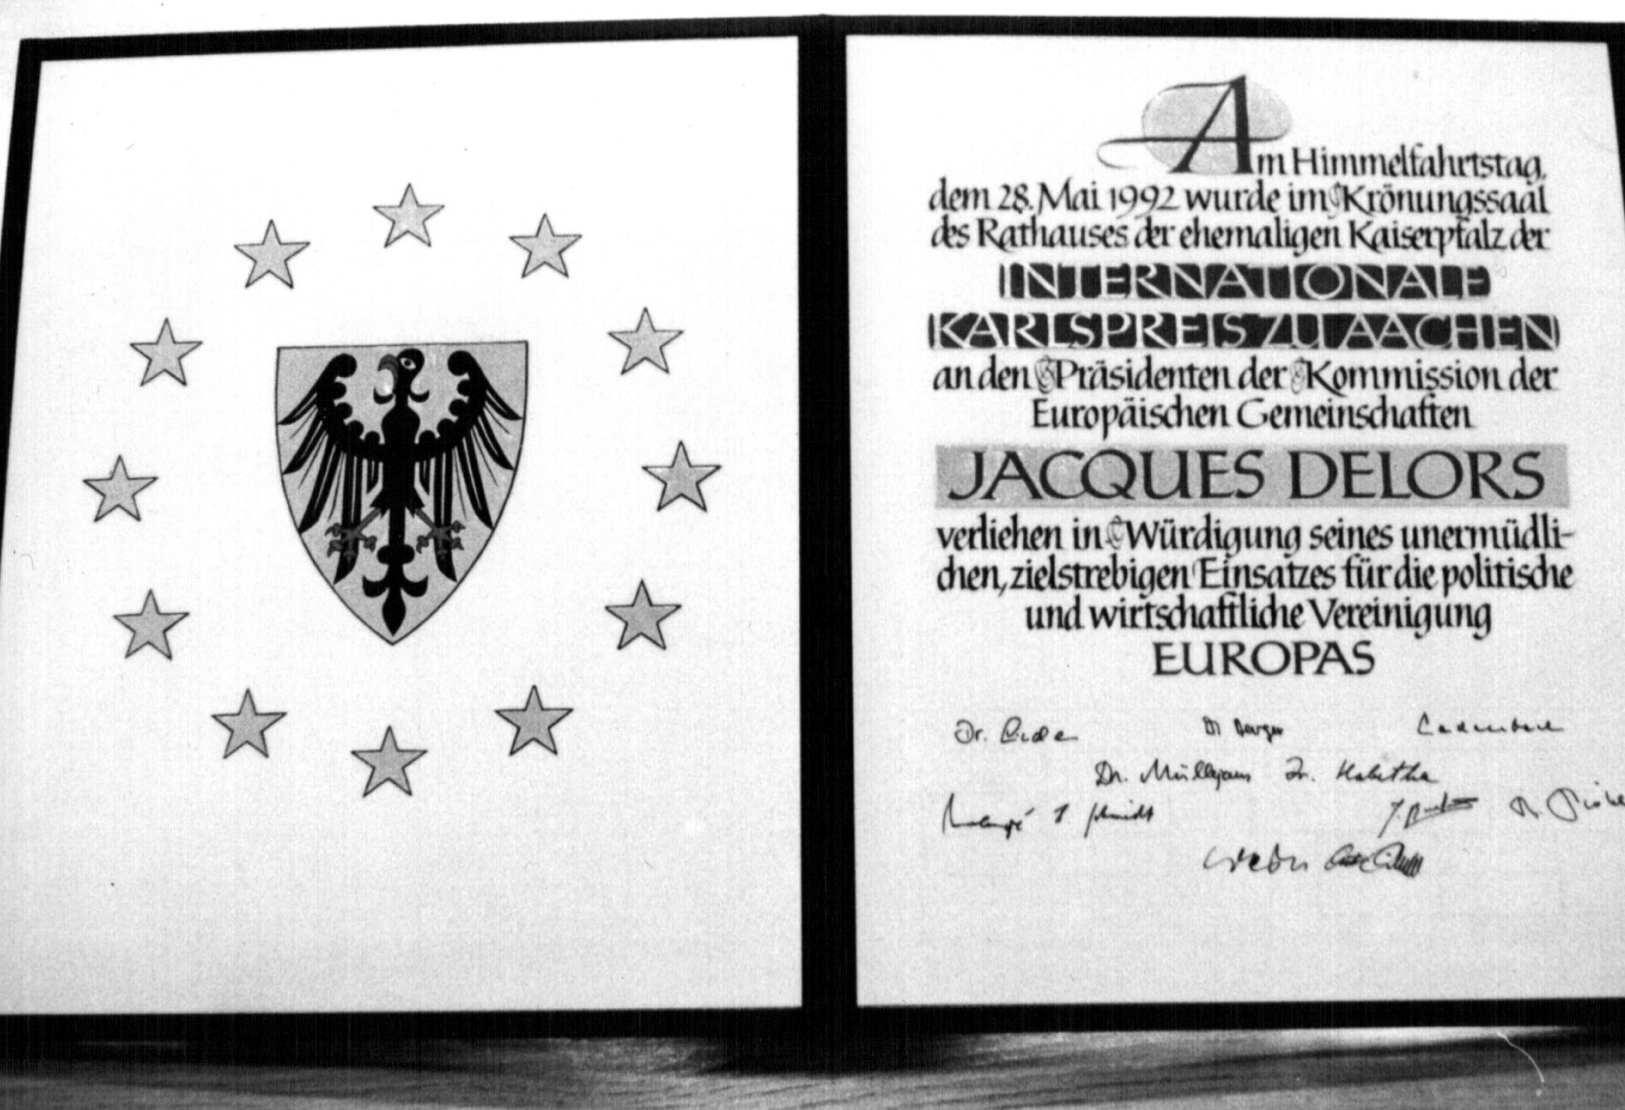 Am Himmelfahrtstag,
dem 28. Mai 1992 wurde im Krönungssaal
des Rathauses der ehemaligen Kaiserpfalz der
INTERNATIONALE
KARLSPREIS ZU AACHEN
an den Präsidenten der Kommission der
Europäischen Gemeinschaften
JACQUES DELORS
verliehen in Würdigung seines unermüdli-
chen, zielstrebigen Einsatzes für die politische
und wirtschaftliche Vereinigung
EUROPAS
Dr.
Dr. Dr. Habetha
Schmidt